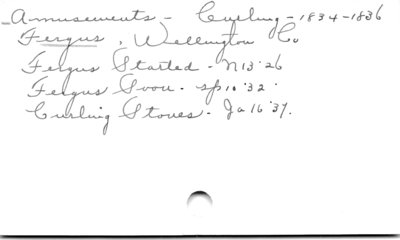 Amusements - Curling - 1834-1836
Fergus, Wellington Co
Fergus Started - N 13 '26
Fergus - Sp 10 '32.
Curling Stones - Ja 16 '37.